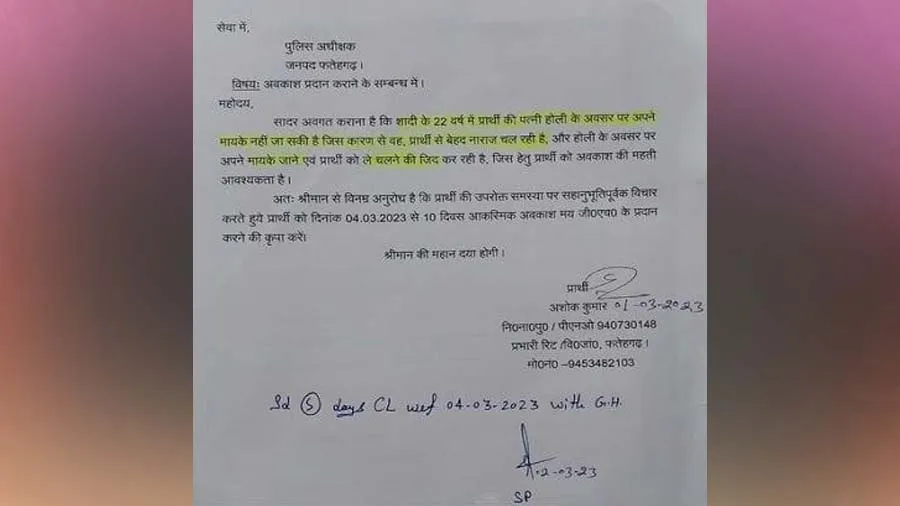 सेवा में,
पुलिस अधीक्षक
जनपद फतेहगढ़।
विषयः अवकाश प्रदान कराने के सम्बन्ध में।
महोदय,
सादर अवगत कराना है कि शादी के 22 वर्ष में प्रार्थी की पत्नी होली के अवसर पर अपने
मायके नहीं जा सकी है जिस कारण से वह, प्रार्थी से बेहद नाराज चल रही है, और होली के अवसर पर
अपने मायके जाने एवं प्रार्थी को ले चलने की जिद कर रही है, जिस हेतु प्रार्थी को अवकाश की महती
आवश्यकता है।
अतः श्रीमान से विनम्र अनुरोध है कि प्रार्थी की उपरोक्त समस्या पर सहानुभूतिपूर्वक विचार
करते हुये प्रार्थी को दिनांक 04.03.2023 से 10 दिवस आकस्मिक अवकाश मय जी0एच0 के प्रदान
करने की कृपा करें।
श्रीमान की महान दया होगी।
प्रार्थी
अशोक कुमार 01-03-2023
नि0ना0पु0 / पीएनओ 940730148
प्रभारी रिट /वि0जां0, फतेहगढ़।
मो0नं0 –9453482103
Sd 5 days CL wef 04-03-2023 with G.H.
2-03-23
SP